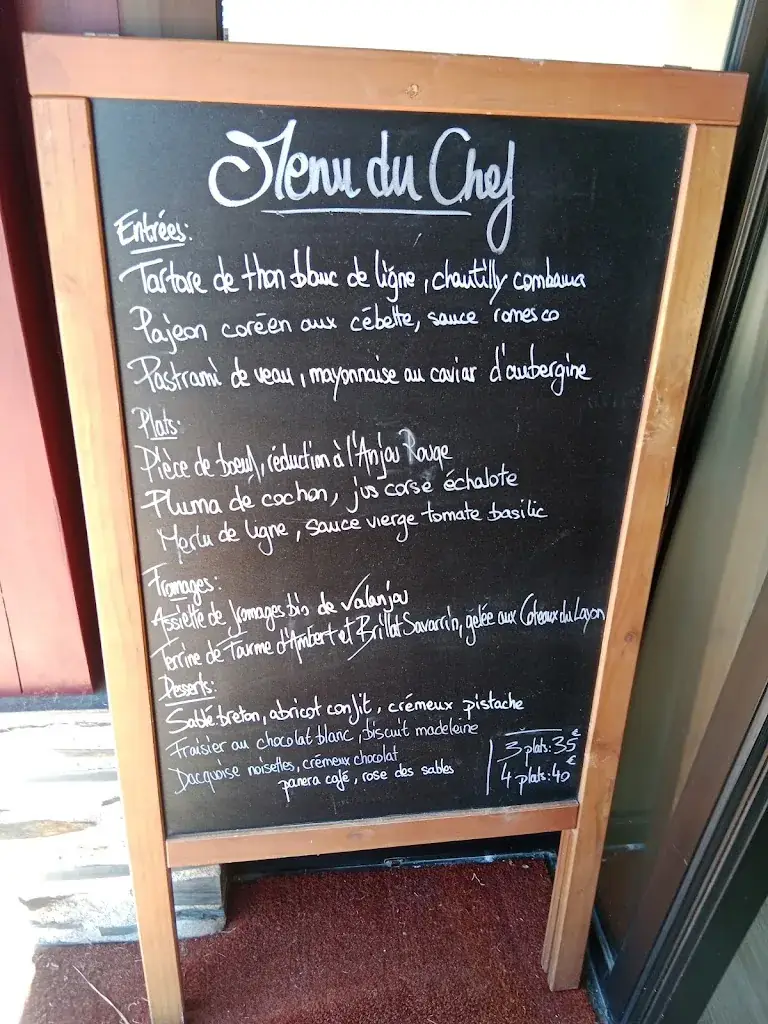 Menu du Chef
Entrées:
Tartare de thon blanc de ligne, chantilly combawa
Pajeon coréen aux cébette, sauce romesco
Pastrami de veau, mayonnaise au caviar d'aubergine
Plats:
Pièce de boeuf, réduction à l'Anjou Rouge
Pluma de cochon, jus corsé échalote
Merlu de ligne, sauce vierge tomate basilic
Fromages:
Assiette de fromages bio de Valanjou
Terrine de Fourme d'Ambert et Brillat Savarin, gelée aux Coteaux du Layon
Desserts:
Sablé breton, abricot confit, crémeux pistache
Fraisier au chocolat blanc, biscuit madeleine
Dacquoise noisettes, crémeux chocolat
panera café, rose des sables
3 plats: 35€
4 plats: 40€